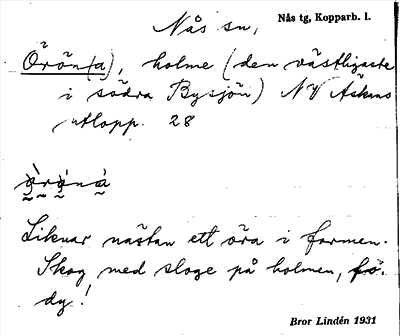 Nås sn,
Nås tg, Kopparb. l.
Örön(a), holme (den västligaste
i södra Bysjön) NV Åskens
utlopp. 28
Liknar nästan ett öra i formen.
Skog med sloge på holmen,
dy!
Bror Lindén 1931